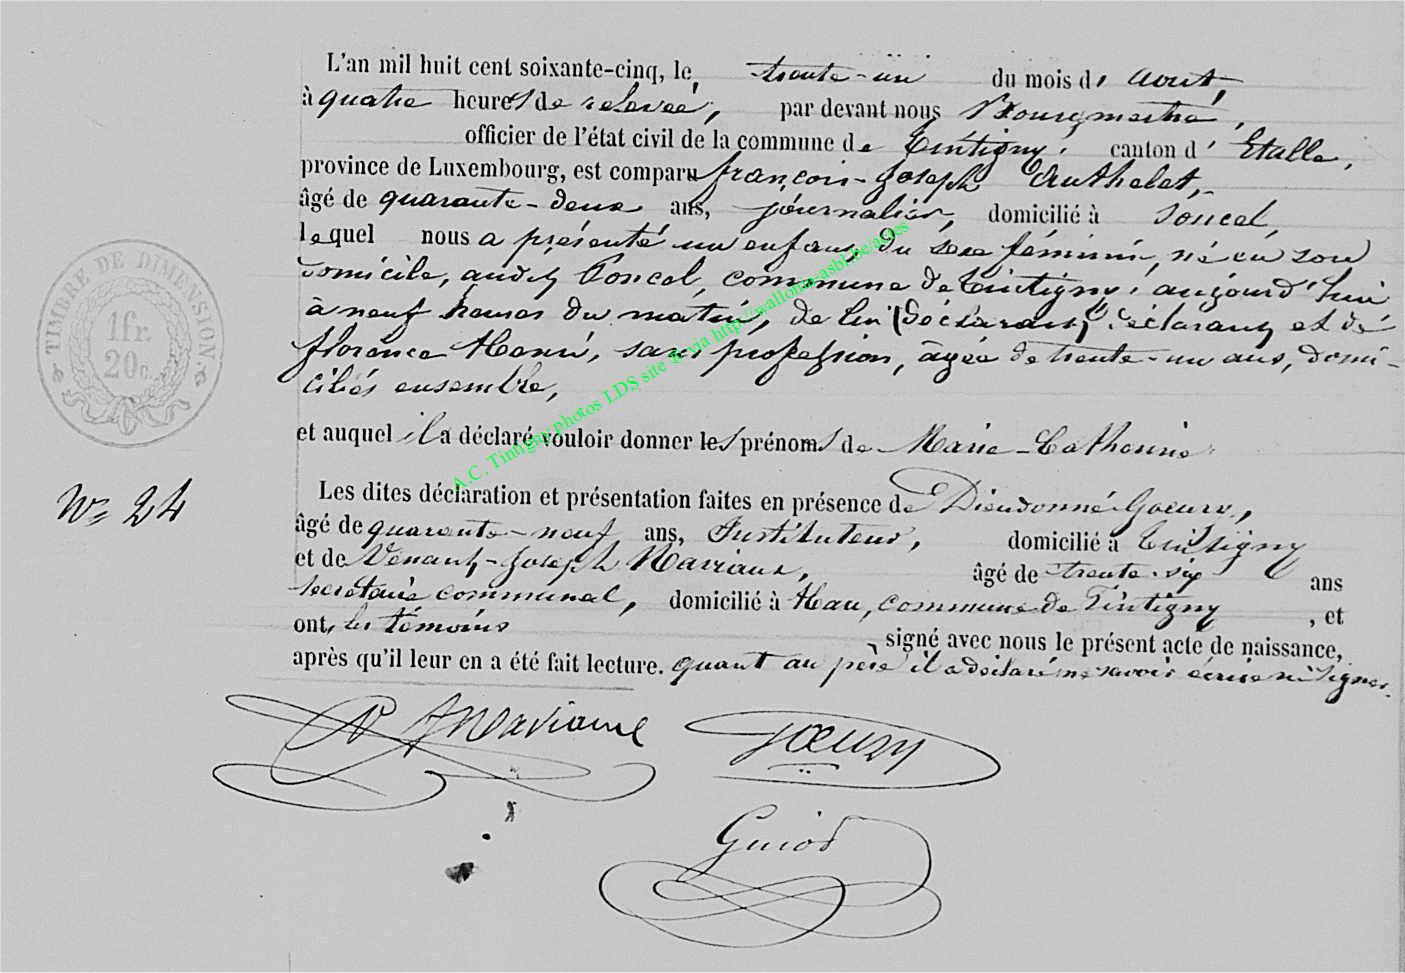 L'an mil huit cent soixante-cinq, le trente-un du mois d'août,
à quatre heures de relevée, par devant nous Bourgmestre,
officier de l'état civil de la commune de Tintigny, canton d'Etalle,
province de Luxembourg, est comparu françois-Joseph Authelet,
âgé de quarante-deux ans, journalier, domicilié à Poncel,
lequel nous a présenté un enfant du sexe féminin, né en son
domicile, audit Poncel, commune de Tintigny, aujourd'hui
à neuf heures du matin, de lui déclarant et de
florence Henri, sans profession, âgée de trente-un ans, domi-
ciliés ensemble,
et auquel il a déclaré vouloir donner les prénoms de Marie-Catherine
Les dites déclaration et présentation faites en présence de Dieudonné Goeury,
âgé de quarante-neuf ans, Instituteur, domicilié à Tintigny
et de Venant-Joseph Naviaux, âgé de trente-six ans
secrétaire communal, domicilié à Han, commune de Tintigny, et
ont, les témoins, signé avec nous le présent acte de naissance,
après qu'il leur en a été fait lecture. quant au père il a déclaré ne savoir écrire ni signer.
TIMBRE DE DIMENSION
1fr.
20c.
N° 24
A.C. Tintigny photos LDS site & via http://wallonia-asbl.be/actes
Naviaux
Goeury
Guiot